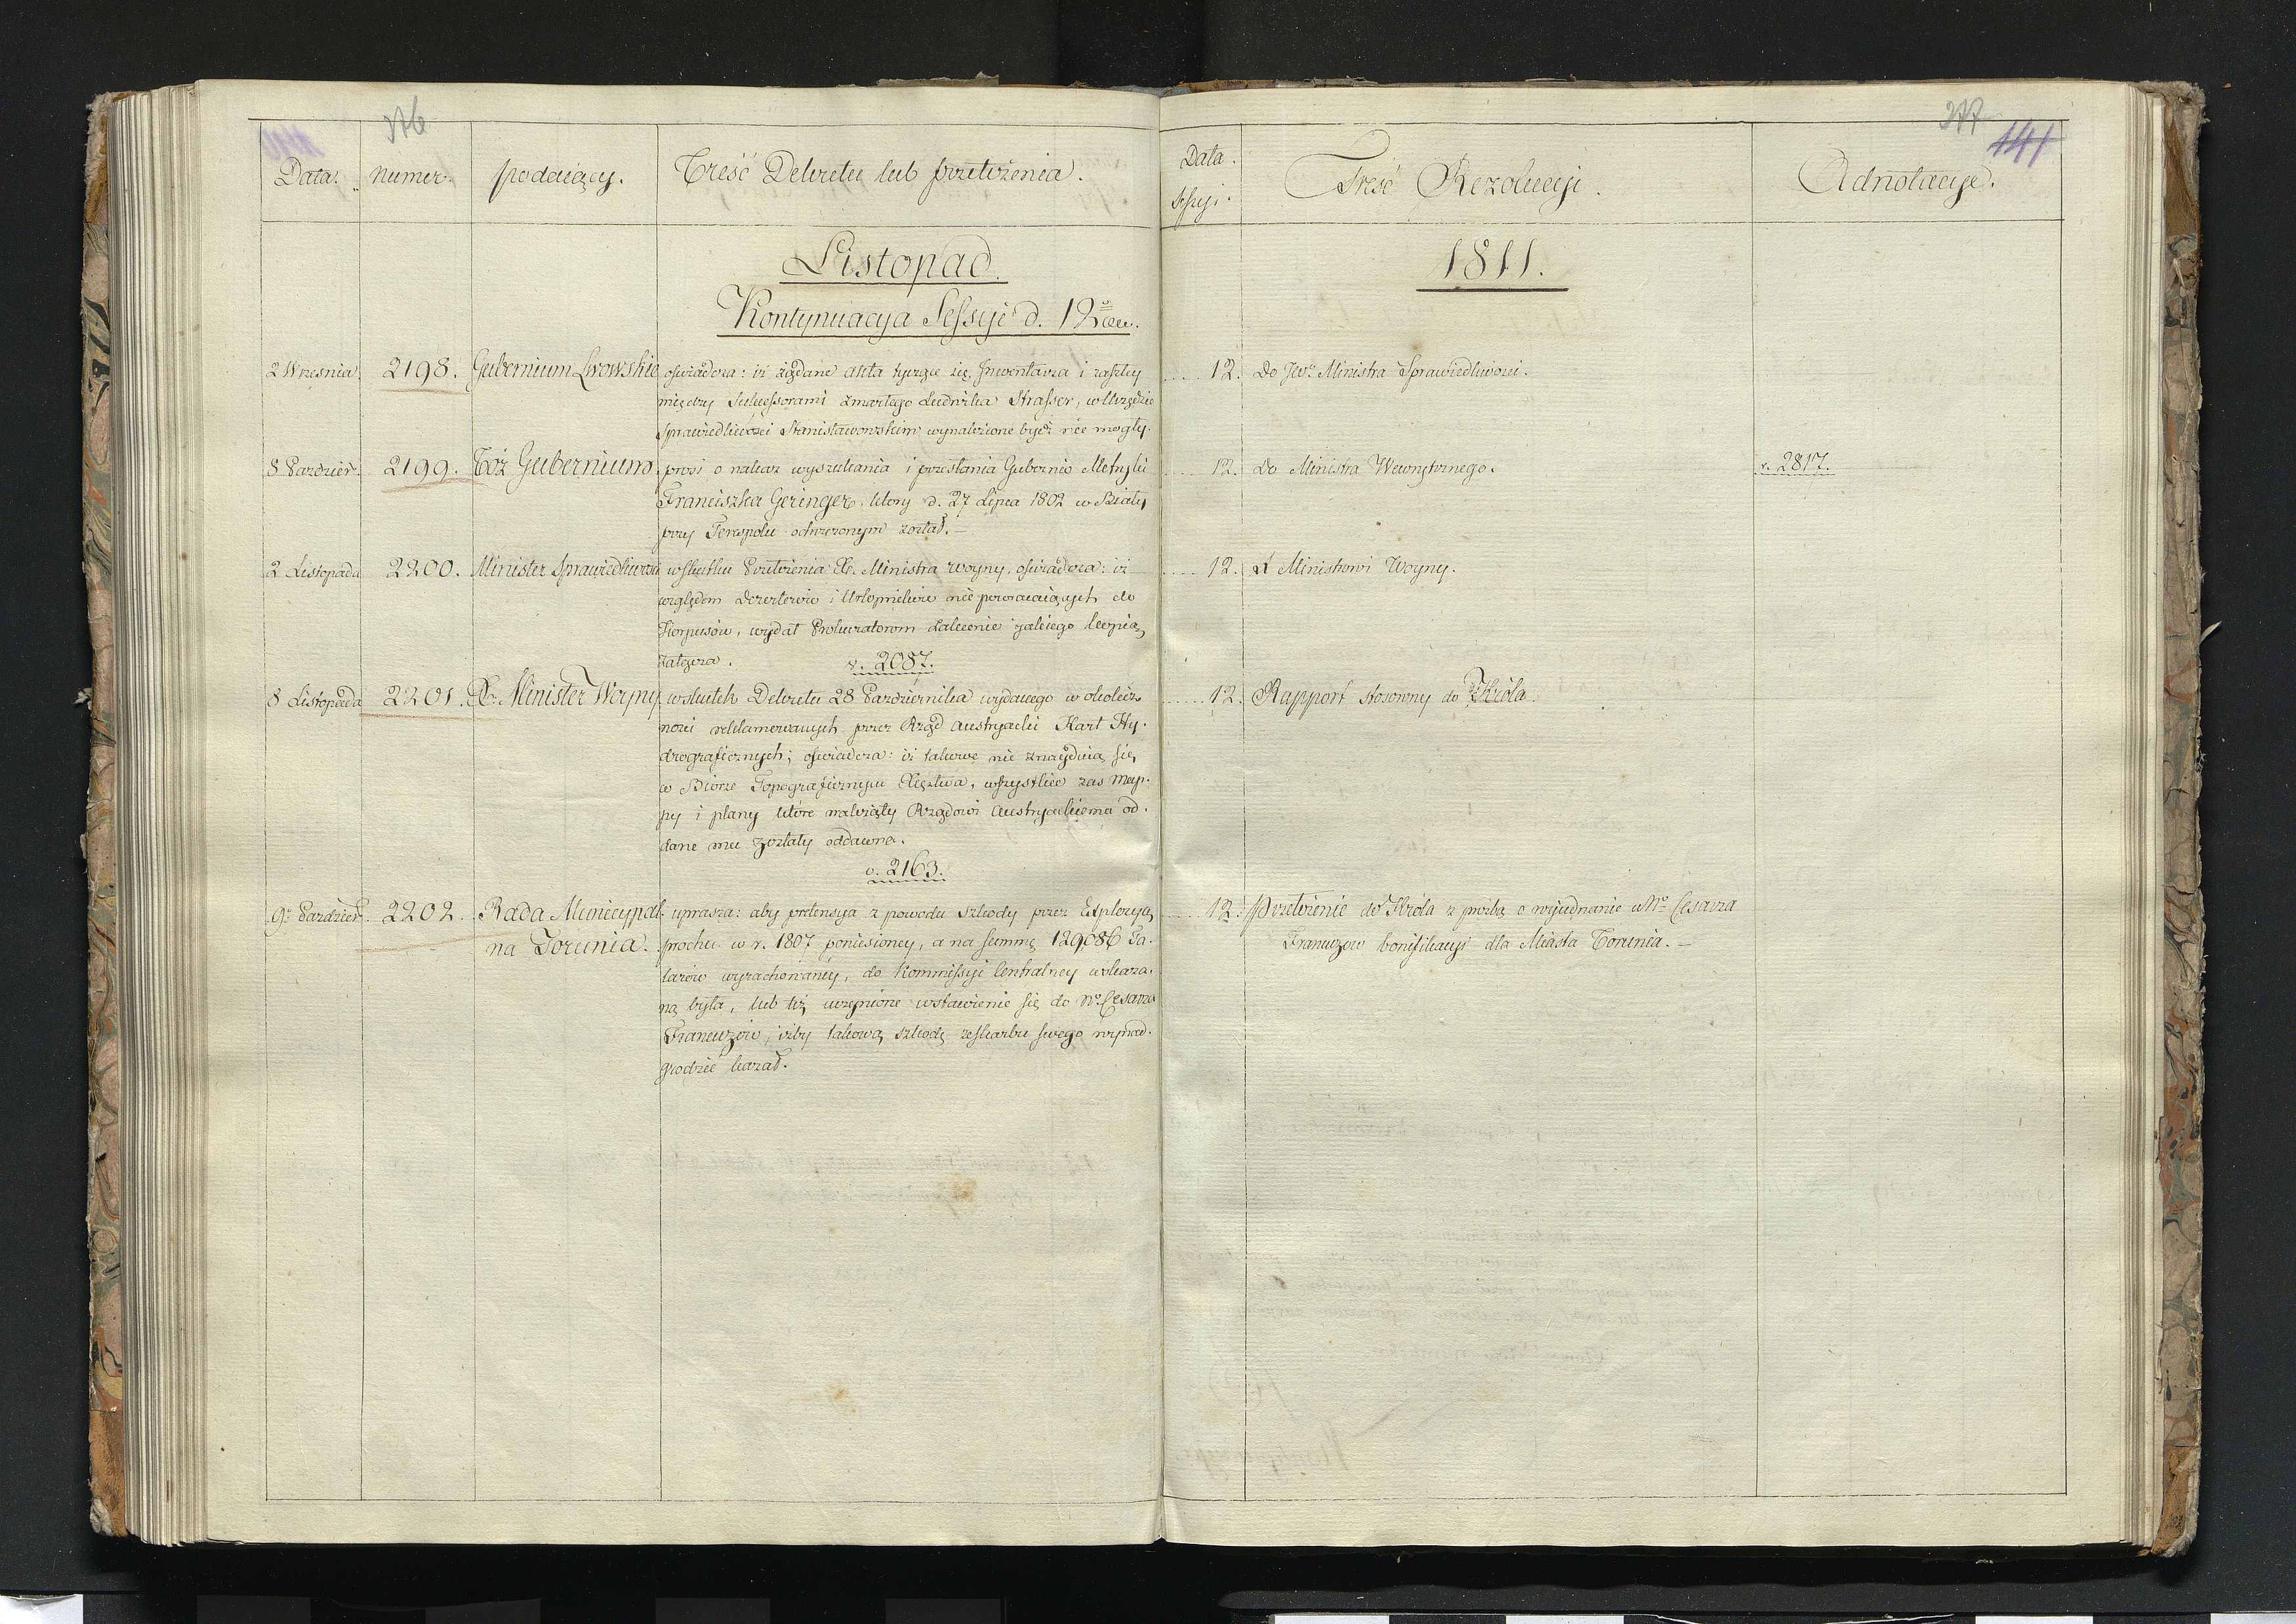 376
Data. numer. podaiący. Treść Dekretu lub przełożenia.
Listopad.
Kontynuacya Sessyi d. 12
2 Wrzesnia 2198. Gubernium Lwowskie oświadcza: iż żądane akta tyczące się Inwentarza i zaszłey
między Sukcessorami zmarłego Ludwika Strasser, w Urzędzie
Sprawiedliwości Stanisławowskim wynalezione bydź nie mogły.
8 Paździer. 2199. Toż Gubernium. prosi o nakaz wyszukania i przesłania Gubernio Metryki
Franciszka Geringer, który d. 27 Lipca 1802 w Białły
przy Terespolu ochrzconym został. —
2 Listopada 2200. Minister Sprawiedliwości w skutku Przełożenia X. Ministra Woyny, oświadcza: iż
względem Dezerterów i Urlopników nie powracaiących do
Korpusów, wydał Prokuratorom zalecenie jakiego kopią
załącza. v. 2087.
8 Listopada 2201. X. Minister Woyny w skutek Dekretu 28 Pazdziernika wydanego w okolicz-
ności reklamowanych przez Rząd Austryacki Kart Hy-
drograficznych; oświadcza: iż takowe nie znayduią się
w Biórze Topograficznym Xięstwa, wszystkie zas map-
py i plany które należały Rządowi Austryackiemu od-
dane mu zostały oddawna.
v. 2163.
9. Paździer. 2202. Rada Municypal- uprasza: aby pretensya z powodu szkody przez Explozyą
na Torunia. prochu w r. 1807 poniesioney, a na summę 129,686 Ta-
larów wyrachowaney, do Kommissyi Centralney wskaza-
ną była, lub też uczynione wstawienie się do No. Cesarza
Francuzów, iżby takową szkodę ze skarbu swego wynad-
grodzić kazał.
377
141
Data Sessyi. Treść Rezolucyi. Adnotacye.
1811.
12. Do JWo. Ministra Sprawiedliwości.
12. Do Ministra Wewnętrznego. v. 2817.
12. X Ministrowi Woyny.
12. Rapport stosowny do Króla.
12. Przełożenie do Króla z prozbą o wyiednanie u No. Cesarza
Francuzow bonifikacyi dla Miasta Torunia. —